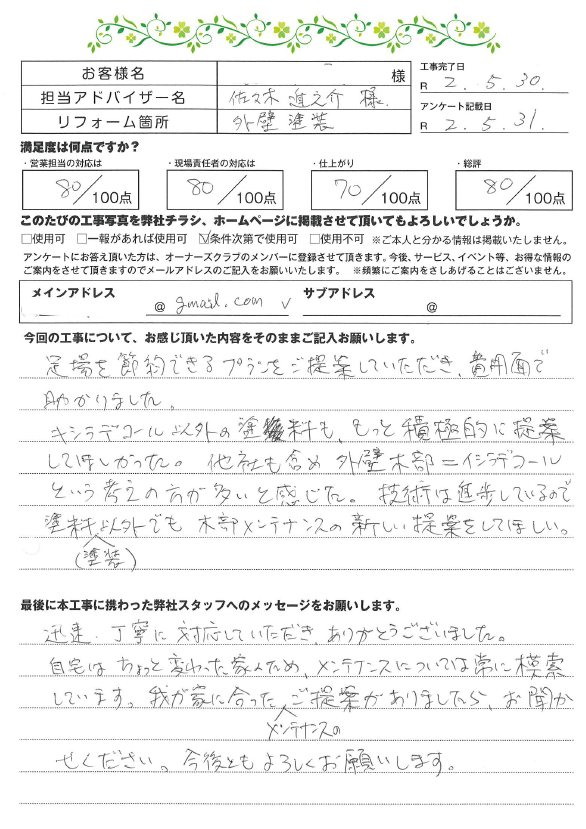 お客様名 様
担当アドバイザー名 佐々木 進之介 様.
リフォーム箇所 外壁 塗装
工事完了日
R 2. 5. 30.
アンケート記載日
R 2. 5. 31.
満足度は何点ですか？
・営業担当の対応は ・現場責任者の対応は ・仕上がり ・総評
80/100点 80/100点 70/100点 80/100点
このたびの工事写真を弊社チラシ、ホームページに掲載させて頂いてもよろしいでしょうか。
□使用可 □一報があれば使用可 ☑条件次第で使用可 □使用不可 ※ご本人と分かる情報は掲載いたしません。
アンケートにお答え頂いた方は、オーナーズクラブのメンバーに登録させて頂きます。今後、サービス、イベント等、お得な情報の
ご案内をさせて頂きますのでメールアドレスのご記入をお願いいたします。 ※頻繁にご案内をさしあげることはございません。
メインアドレス サブアドレス
@ gmail.com @
今回の工事について、お感じ頂いた内容をそのままご記入お願いします。
足場を節約できるプランをご提案していただき、費用面で
助かりました。
キシラデコール以外の塗料も、もっと積極的に提案
してほしかった。他社も含め 外壁木部＝キシラデコール
という考えの方が多いと感じた。 技術は進歩しているので
塗料以外でも 木部メンテナンスの新しい提案をしてほしい。
(塗装)
最後に本工事に携わった弊社スタッフへのメッセージをお願いします。
迅速、丁寧に対応していただき、ありがとうございました。
自宅はちょっと変わった家なため、メンテナンスについては常に模索
しています。我が家に合った、ご提案がありましたら、お聞か
メンテナンスの
せください。今後ともよろしくお願いします。